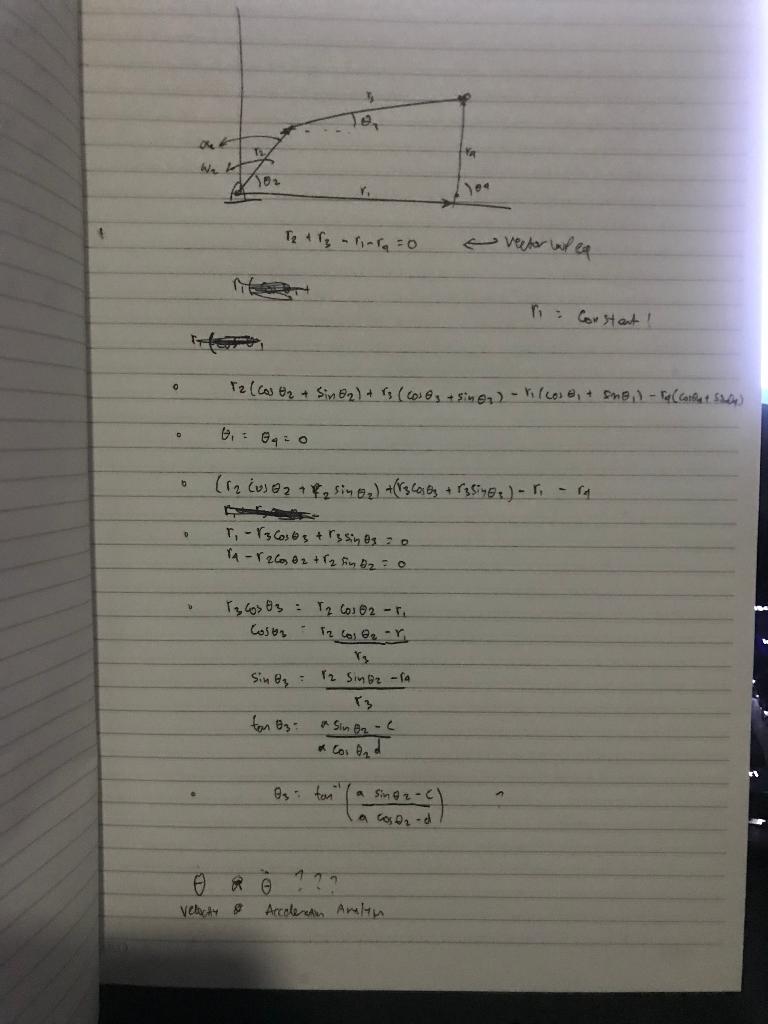 r3
θ3
α2
r2
r4
ω2
θ2
r1
θ4
r2 + r3 - r1 - r4 = 0 ← vector loop eq
r1 = constant!
r2 (cos θ2 + sin θ2) + r3 (cos θ3 + sin θ3) - r1 (cos θ1 + sin θ1) - r4 (cos θ4 + sin θ4)
θ1 = θ4 = 0
(r2 cos θ2 + r2 sin θ2) + (r3 cos θ3 + r3 sin θ3) - r1 - r4
r1 - r3 cos θ3 + r3 sin θ3 = 0
r4 - r2 cos θ2 + r2 sin θ2 = 0
r3 cos θ3 = r2 cos θ2 - r1
cos θ3 = r2 cos θ2 - r1
r3
sin θ3 = r2 sin θ2 - r4
r3
tan θ3 = a sin θ2 - c
a cos θ2 d
θ3 = tan⁻¹ (a sin θ2 - c) ?
a cos θ2 - d
θ̇ & θ̈ ???
Velocity & Acceleration Analysis